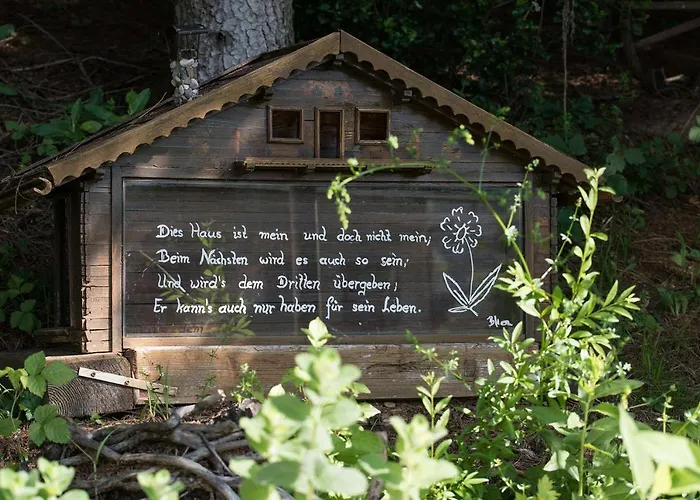 Dies Haus ist mein und doch nicht mein,
Beim Nächsten wird es auch so sein;
Und wird's dem Dritten übergeben;
Er kann's auch nur haben für sein Leben.